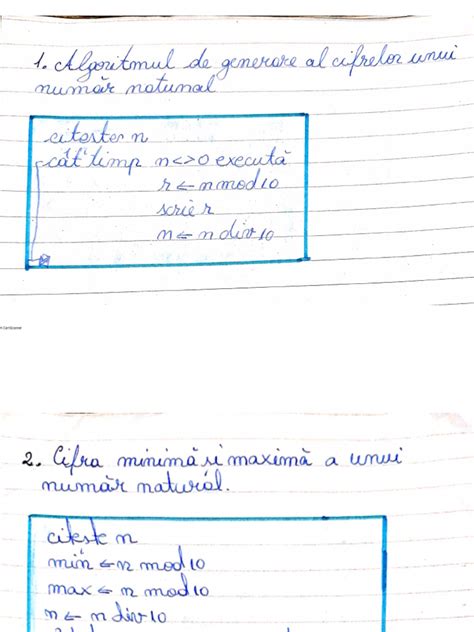 1. Algoritmul de generare al cifrelor unui
număr natural
citește n
cât timp n<>0 execută
r ← n mod 10
scrie r
n ← n div 10
2. Cifra minimă și maximă a unui
număr natural.
citește n
min ← n mod 10
max ← n mod 10
n ← n div 10